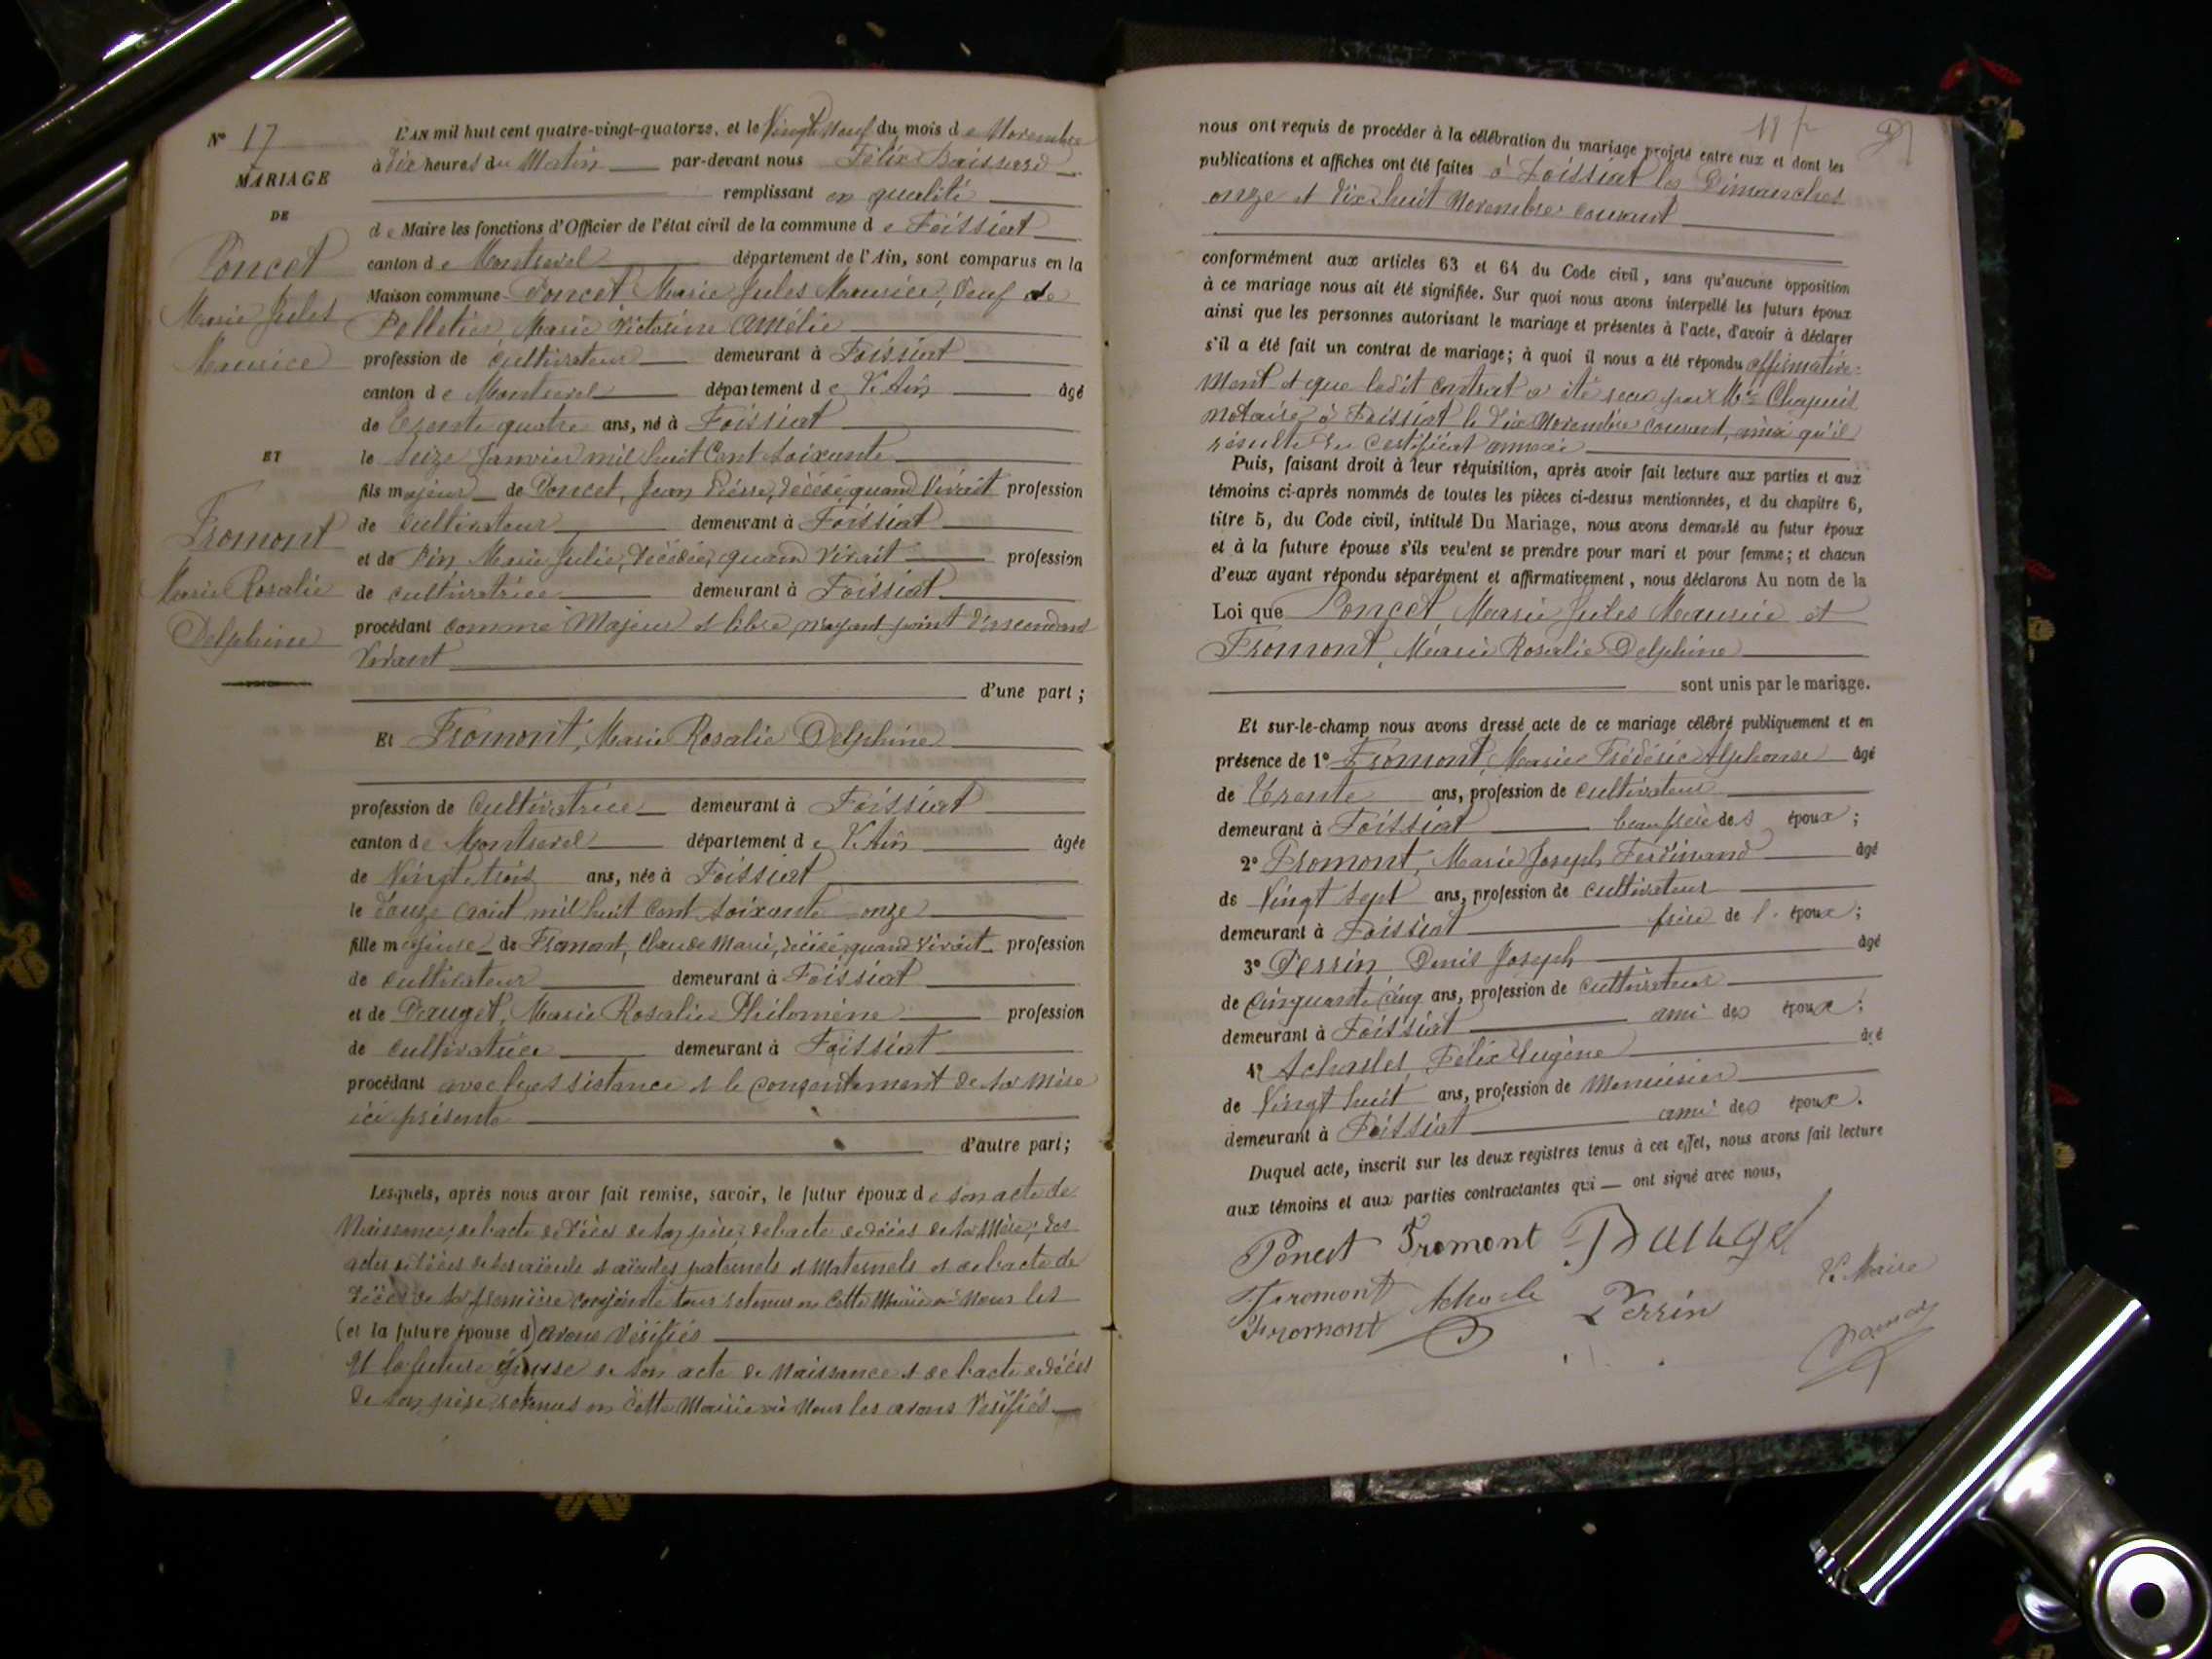 N° 17
MARIAGE
DE
Poncet
Marie Jules
Maurice
ET
Fromont
Marie Rosalie
Delphine
L'AN mil huit cent quatre-vingt-quatorze, et le Vingt Neuf du mois de Novembre
à Dix heures du Matin par-devant nous Félix
remplissant en qualité
de Maire les fonctions d'Officier de l'état civil de la commune de Foissiat
canton de Montrevel département de l'Ain, sont comparus en la
Maison commune Poncet Marie Jules Maurice, Veuf de
Pelletier, Marie Victorine Amélie
profession de Cultivateur demeurant à Foissiat
canton de Montrevel département de l'Ain âgé
de trente quatre ans, né à Foissiat
le Seize Janvier mil huit Cent soixante
fils majeur de Poncet, Jean Pierre, décédé, quand Vivait profession
de Cultivateur demeurant à Foissiat
et de Pin Marie Julie, décédée, quand Vivait profession
de cultivatrice demeurant à Foissiat
procédant comme Majeur et libre, n'ayant point d'ascendant
Vivant
d'une part;
Et Fromont, Marie Rosalie Delphine
profession de Cultivatrice demeurant à Foissiat
canton de Montrevel département de l'Ain âgée
de Vingt trois ans, née à Foissiat
le douze août mil huit Cent soixante onze
fille majeure de Fromont, Claude Marie, décédé, quand Vivait profession
de cultivateur demeurant à Foissiat
et de Dauget, Marie Rosalie Philomène profession
de cultivatrice demeurant à Foissiat
procédant avec l'assistance et le consentement de sa Mère
ici présente
d'autre part;
Lesquels, après nous avoir fait remise, savoir, le futur époux de son acte de
Naissance, de l'acte de décès de son père, de l'acte de décès de sa Mère, des
actes de décès de ses aïeuls et aïeules paternels et Maternels et de l'acte de
décès de sa première conjointe tous retenus en cette Mairie où Nous les
(et la future épouse d) avons Vérifiés
Et la future épouse de son acte de Naissance et de l'acte de décès
de son père, retenus en cette Mairie où Nous les avons Vérifiés
nous ont requis de procéder à la célébration du mariage projeté entre eux et dont les
publications et affiches ont été faites à Foissiat les Dimanches
onze et dix huit Novembre courant
conformément aux articles 63 et 64 du Code civil, sans qu'aucune opposition
à ce mariage nous ait été signifiée. Sur quoi nous avons interpellé les futurs époux
ainsi que les personnes autorisant le mariage et présentes à l'acte, d'avoir à déclarer
s'il a été fait un contrat de mariage; à quoi il nous a été répondu affirmative-
ment et que ledit contrat a été reçu par Me Chapuis
notaire à Foissiat le dix Novembre courant, ainsi qu'il
résulte du certificat annexé
Puis, faisant droit à leur réquisition, après avoir fait lecture aux parties et aux
témoins ci-après nommés de toutes les pièces ci-dessus mentionnées, et du chapitre 6,
titre 5, du Code civil, intitulé Du Mariage, nous avons demandé au futur époux
et à la future épouse s'ils veulent se prendre pour mari et pour femme; et chacun
d'eux ayant répondu séparément et affirmativement, nous déclarons Au nom de la
Loi que Poncet, Marie Jules Maurice et
Fromont, Marie Rosalie Delphine
sont unis par le mariage.
Et sur-le-champ nous avons dressé acte de ce mariage célébré publiquement et en
présence de 1° Fromont, Marie Frédéric Alphonse âgé
de trente ans, profession de cultivateur
demeurant à Foissiat beau frère des époux;
2° Fromont, Marie Joseph Ferdinand âgé
de Vingt sept ans, profession de cultivateur
demeurant à Foissiat frère de l' époux;
3° Perrin Denis Joseph âgé
de Cinquante cinq ans, profession de cultivateur
demeurant à Foissiat ami des époux;
4° Acharles, Félix Eugène âgé
de Vingt huit ans, profession de Menuisier
demeurant à Foissiat ami des époux.
Duquel acte, inscrit sur les deux registres tenus à cet effet, nous avons fait lecture
aux témoins et aux parties contractantes qui ont signé avec nous,
Poncet Fromont Dauget
Le Maire
Fromont Perrin
Fromont